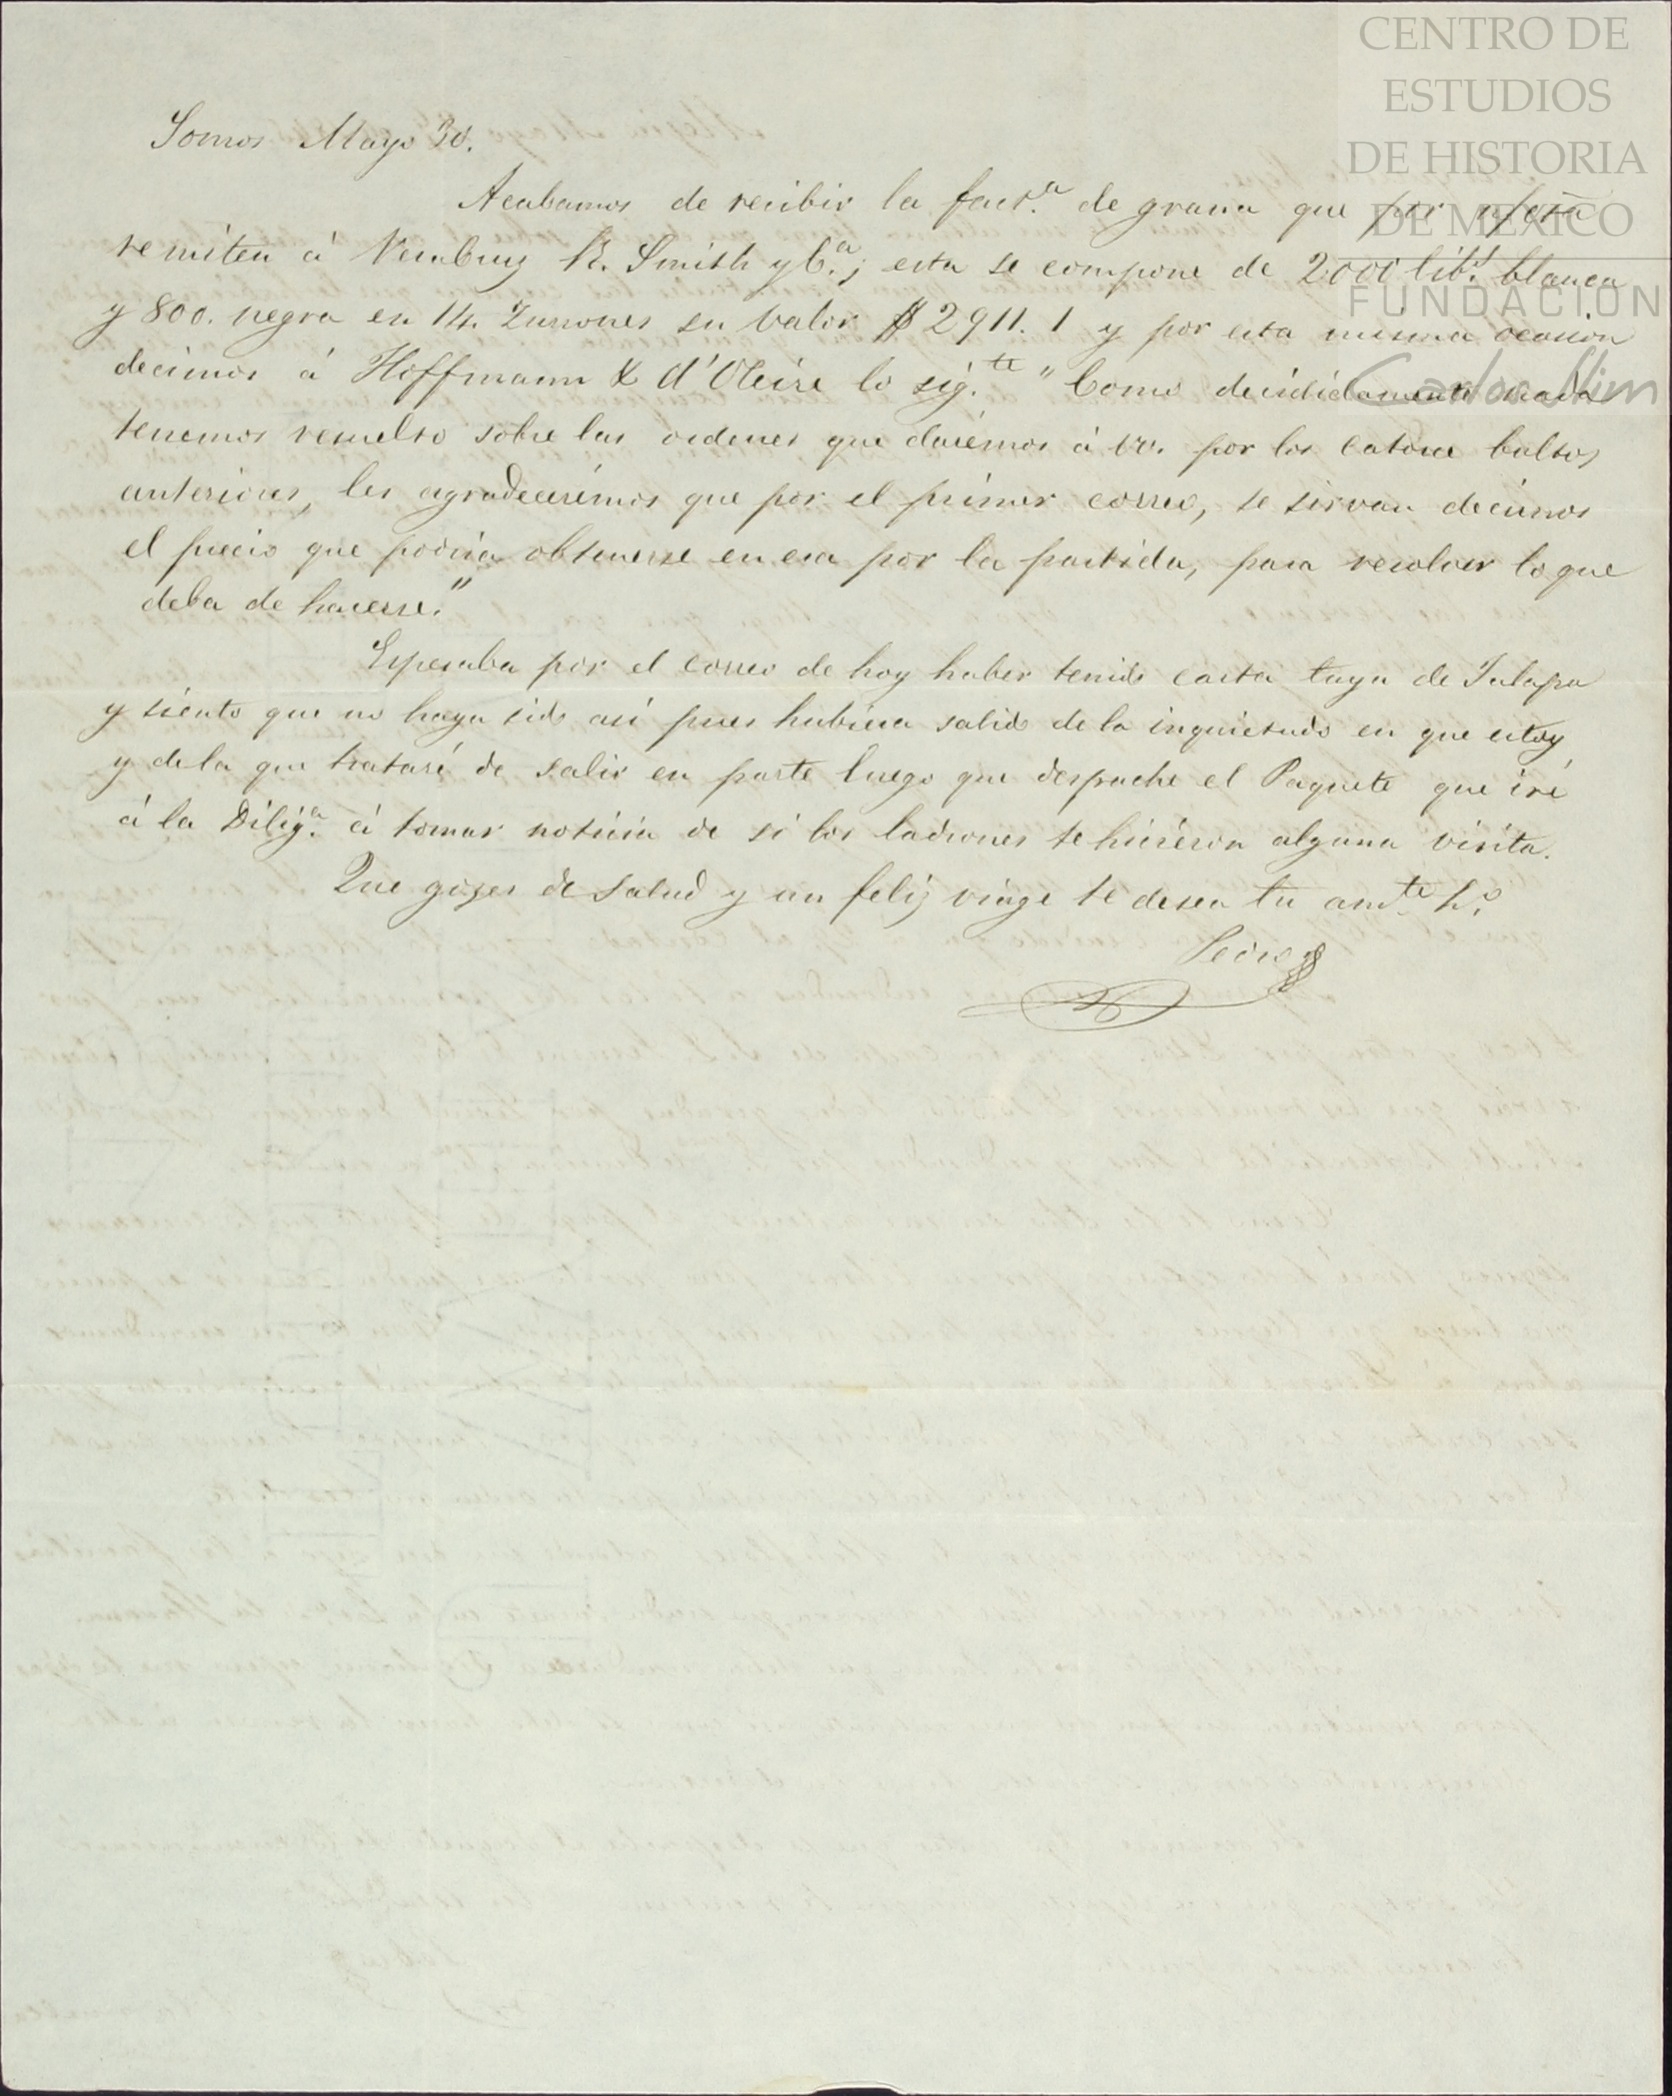 CENTRO DE
ESTUDIOS
DE HISTORIA
DE MEXICO
FUNDACIÓN
Carlos Slim
Somos Mayo 30.
Acabamos de recibir la fact.ª de grana que por n/cta
remiten á R. Smith y C.ª; esta se compone de 2000 lib.s blanca
y 800. negra en 14. Zurrones su valor $ 2911. 1 y por esta misma ocasion
decimos á Hoffmann & d'Oleire lo sig.te " Como decididamente nada
tenemos resuelto sobre las ordenes que darémos á vv. por los catorce bultos
anteriores, les agradecerémos que por el primer correo, se sirvan decirnos
el precio que podria obtenerse en esa por la partida, para resolver lo que
deba de hacerse."
Esperaba por el correo de hoy haber tenido carta tuya de Jalapa
y siento que no haya sido asi pues hubiera salido de la inquietud en que estoy
y de la que trataré de salir en parte luego que despache el Paquete que iré
á la Dilig.ª á tomar noticia de si los ladrones te hiciéron alguna visita.
Que gozes de salud y un feliz viage te desea tu am.te h.º
Pedro